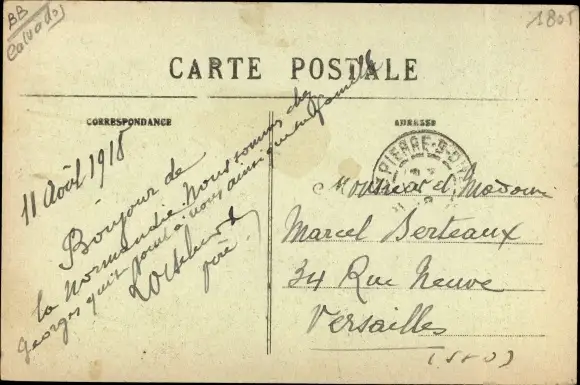 BB
Calvados
1805
CARTE POSTALE
CORRESPONDANCE
ADRESSE
11 Août 1918
Bonjour de
la Normandie. Nous sommes chez
Georges qui se joint à nous ainsi que sa famille
père
PIERRE-S-D
Monsieur et Madame
Marcel Berteaux
34 Rue Neuve
Versailles
(S & O)